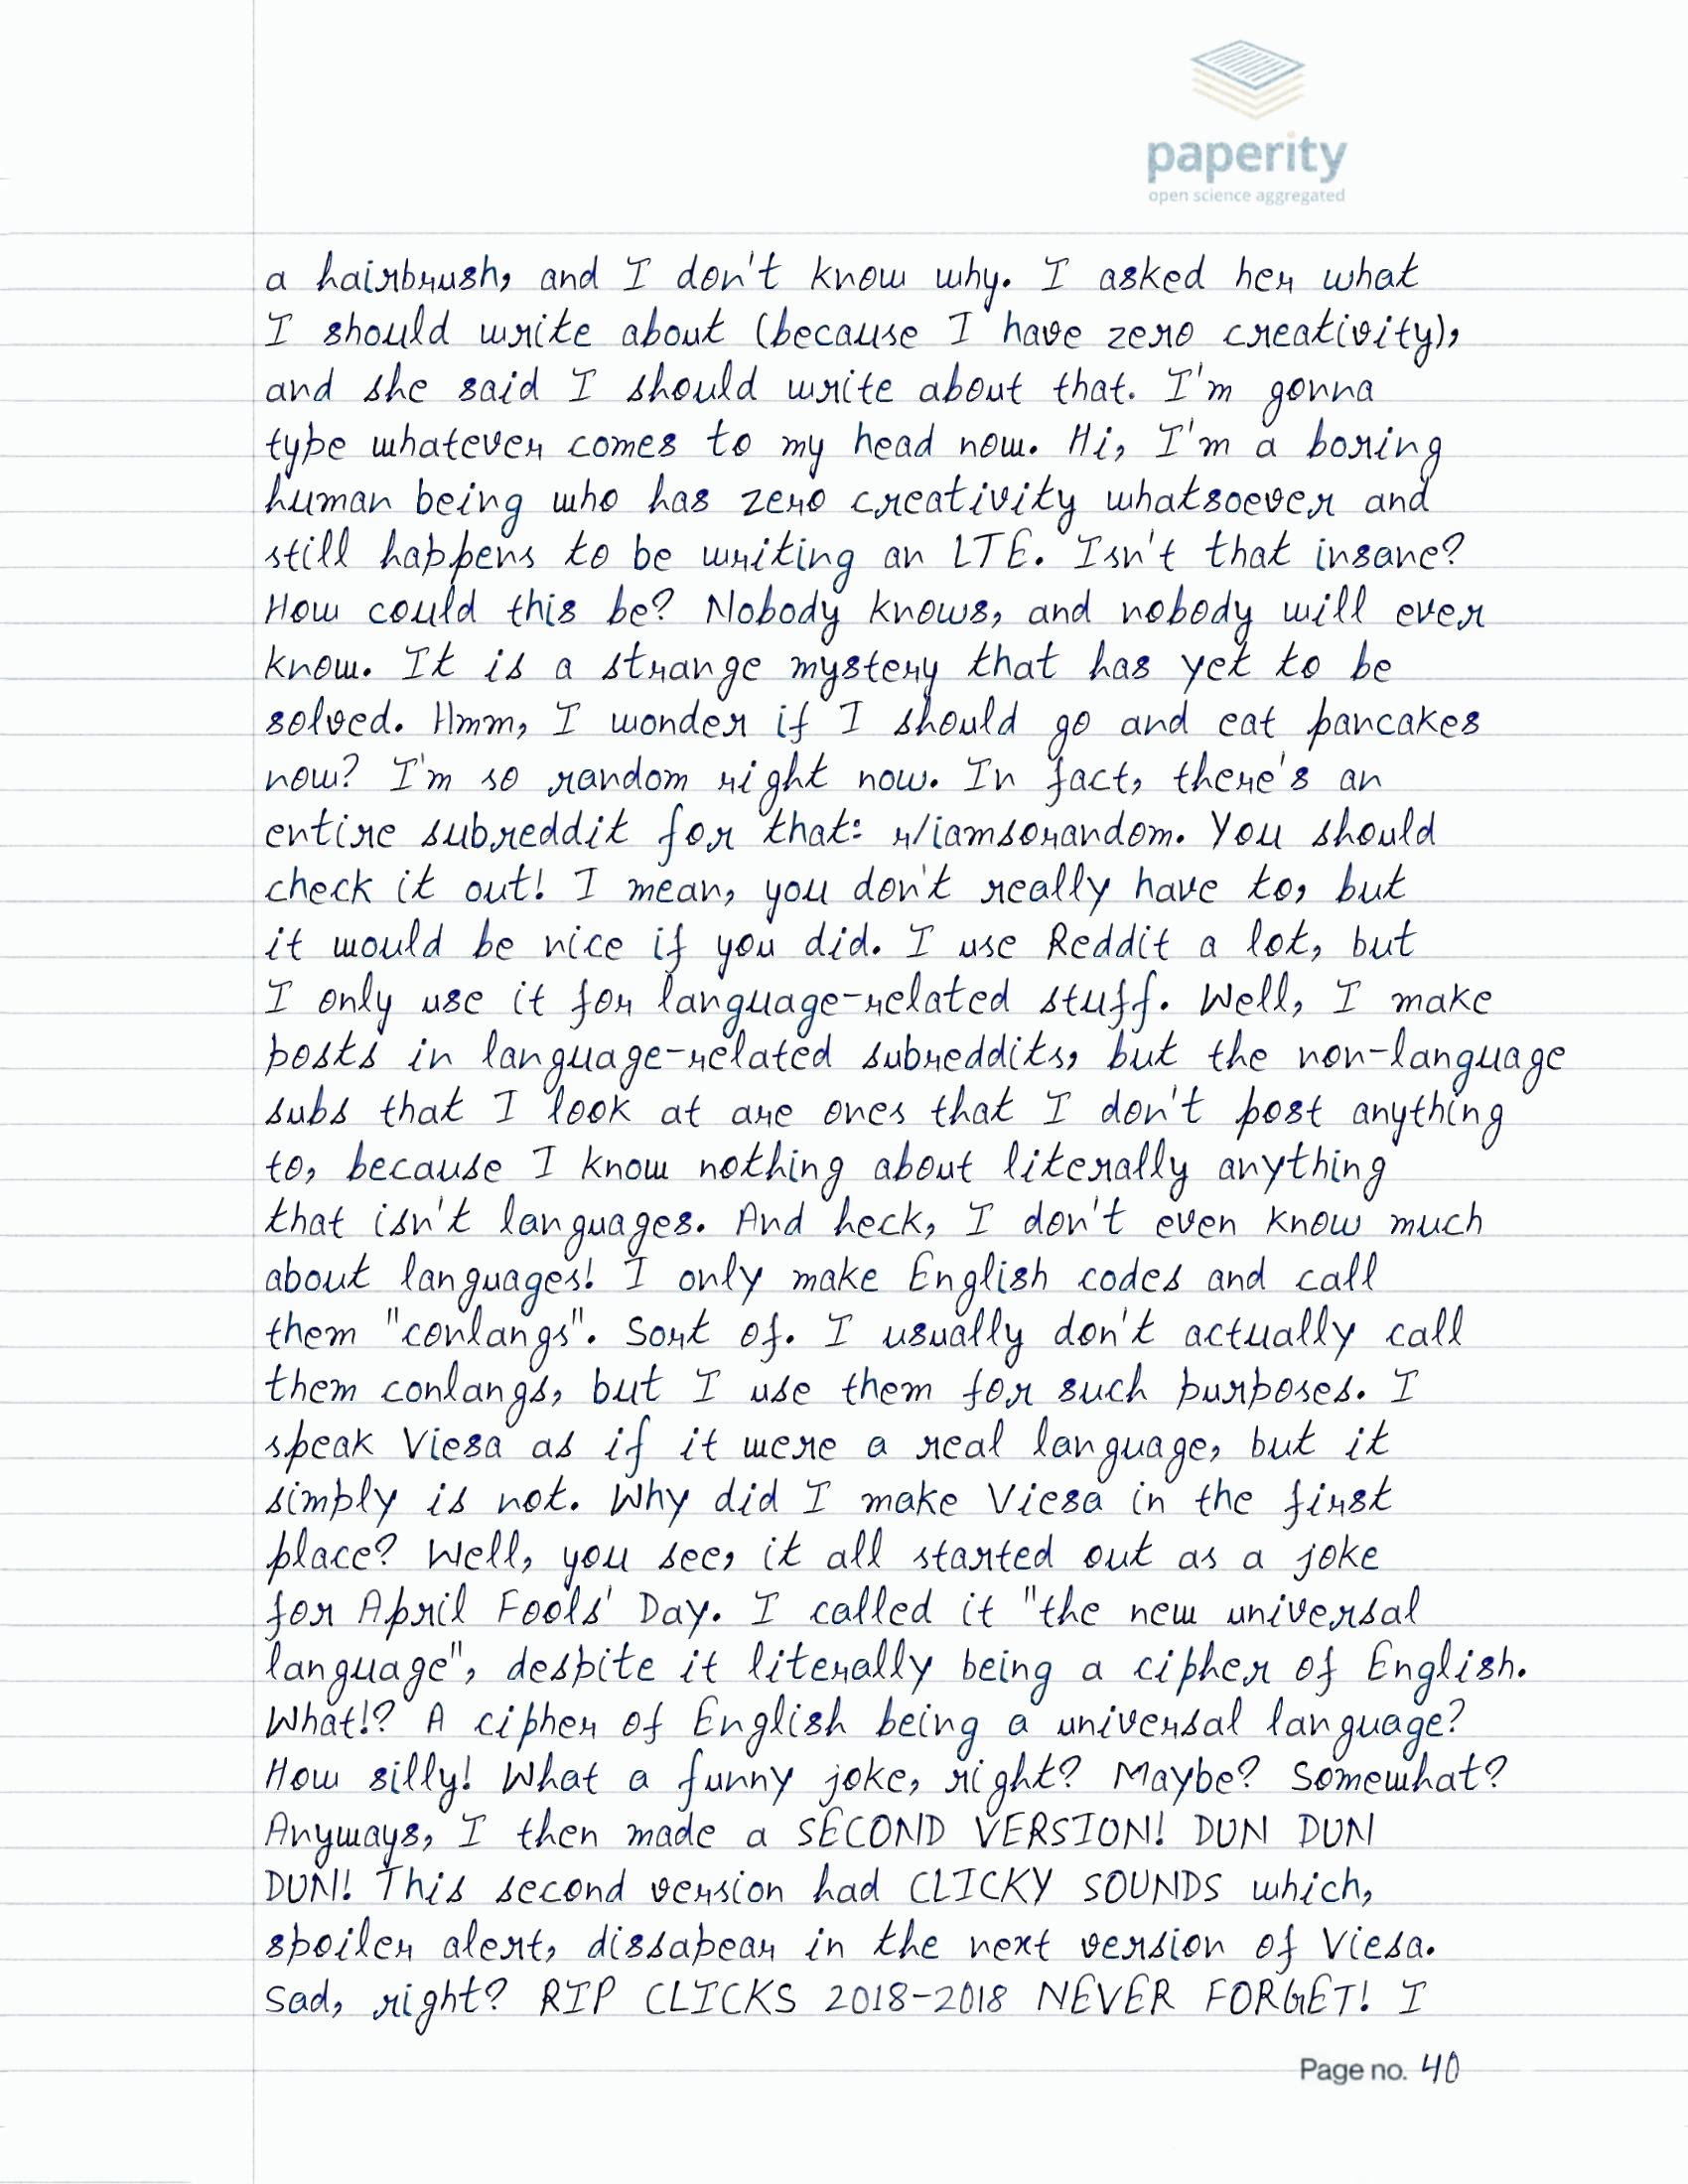 paperity
open science aggregated
a hairbrush, and I don't know why. I asked her what
I should write about (because I have zero creativity),
and she said I should write about that. I'm gonna
type whatever comes to my head now. Hi, I'm a boring
human being who has zero creativity whatsoever and
still happens to be writing an LTE. Isn't that insane?
How could this be? Nobody knows, and nobody will ever
know. It is a strange mystery that has yet to be
solved. Hmm, I wonder if I should go and eat pancakes
now? I'm so random right now. In fact, there's an
entire subreddit for that: r/iamsorandom. You should
check it out! I mean, you don't really have to, but
it would be nice if you did. I use Reddit a lot, but
I only use it for language-related stuff. Well, I make
posts in language-related subreddits, but the non-language
subs that I look at are ones that I don't post anything
to, because I know nothing about literally anything
that isn't languages. And heck, I don't even know much
about languages! I only make English codes and call
them "conlangs". Sort of. I usually don't actually call
them conlangs, but I use them for such purposes. I
speak Viesa as if it were a real language, but it
simply is not. Why did I make Viesa in the first
place? Well, you see, it all started out as a joke
for April Fools' Day. I called it "the new universal
language", despite it literally being a cipher of English.
What!? A cipher of English being a universal language?
How silly! What a funny joke, right? Maybe? Somewhat?
Anyways, I then made a SECOND VERSION! DUN DUN
DUN! This second version had CLICKY SOUNDS which,
spoiler alert, dissapear in the next version of Viesa.
Sad, right? RIP CLICKS 2018-2018 NEVER FORGET! I
Page no. 40